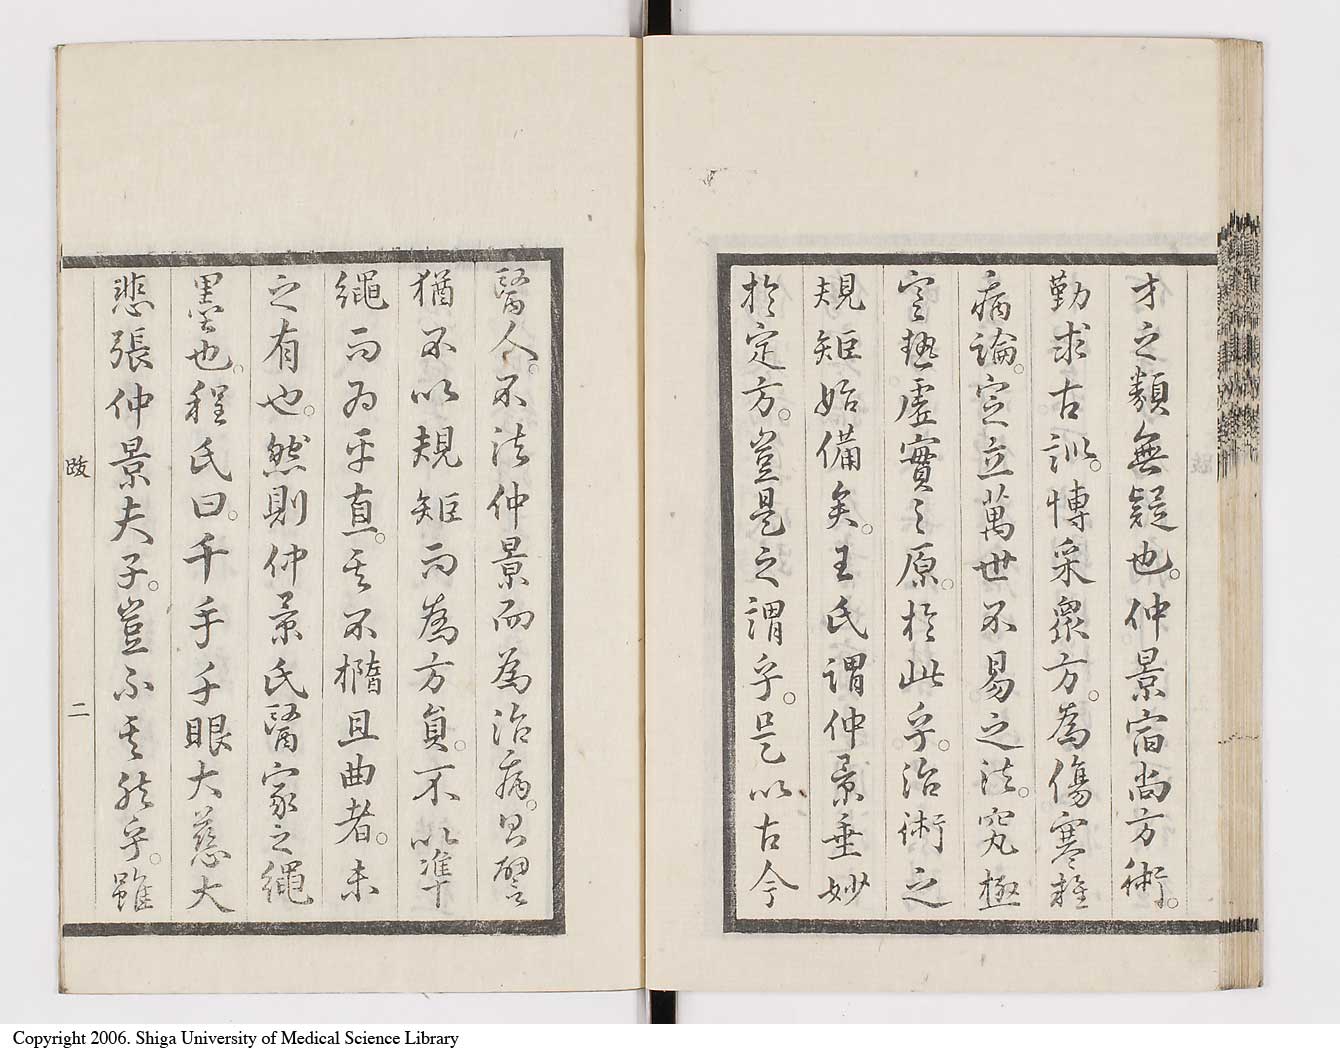 才之類無疑也。仲景宿尚方術。
勤求古訓。博采眾方。為傷寒雜
病論。定立萬世不易之法。究極
寒熱虛實之原。於此乎。治術之
規矩始備矣。王氏謂仲景垂妙
於定方。豈是之謂乎。是以古今
醫人。不法仲景而為治病。只譬
猶不以規矩而為方員。不以準
繩而為平直。其不橢且曲者。未
之有也。然則仲景氏醫家之繩
墨也。程氏曰。千手千眼大慈大
悲張仲景夫子。豈不其然乎。雖
跋
二
Copyright 2006. Shiga University of Medical Science Library